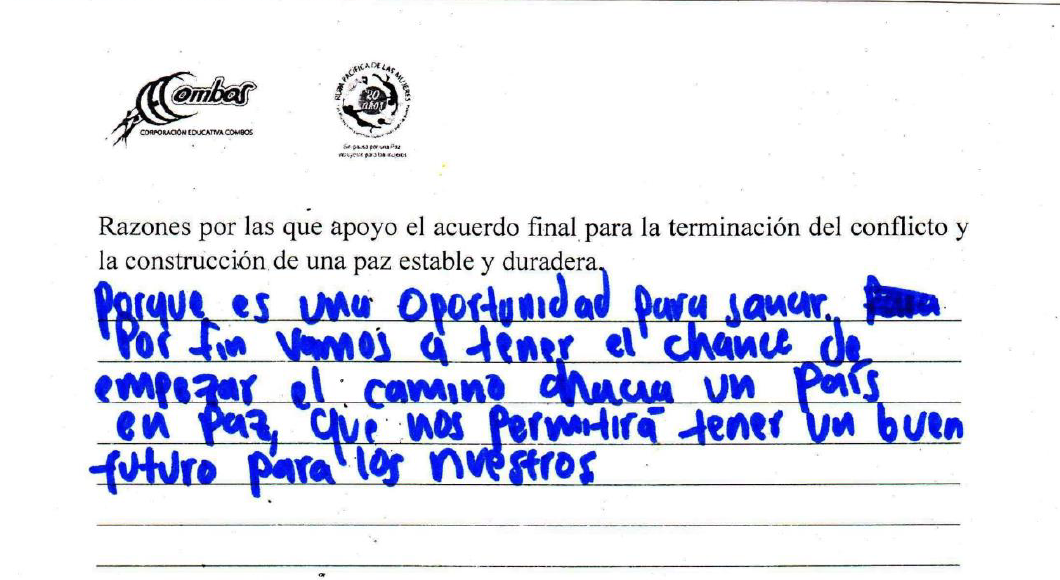 Combos
CORPORACIÓN EDUCATIVA COMBOS
RUTA PACÍFICA DE LAS MUJERES
20
años
Razones por las que apoyo el acuerdo final para la terminación del conflicto y
la construcción de una paz estable y duradera.
Porque es una oportunidad para sanar.
Por fin vamos a tener el chance de
empezar el camino hacia un País
en Paz, que nos Permitirá tener un buen
futuro para los nuestros